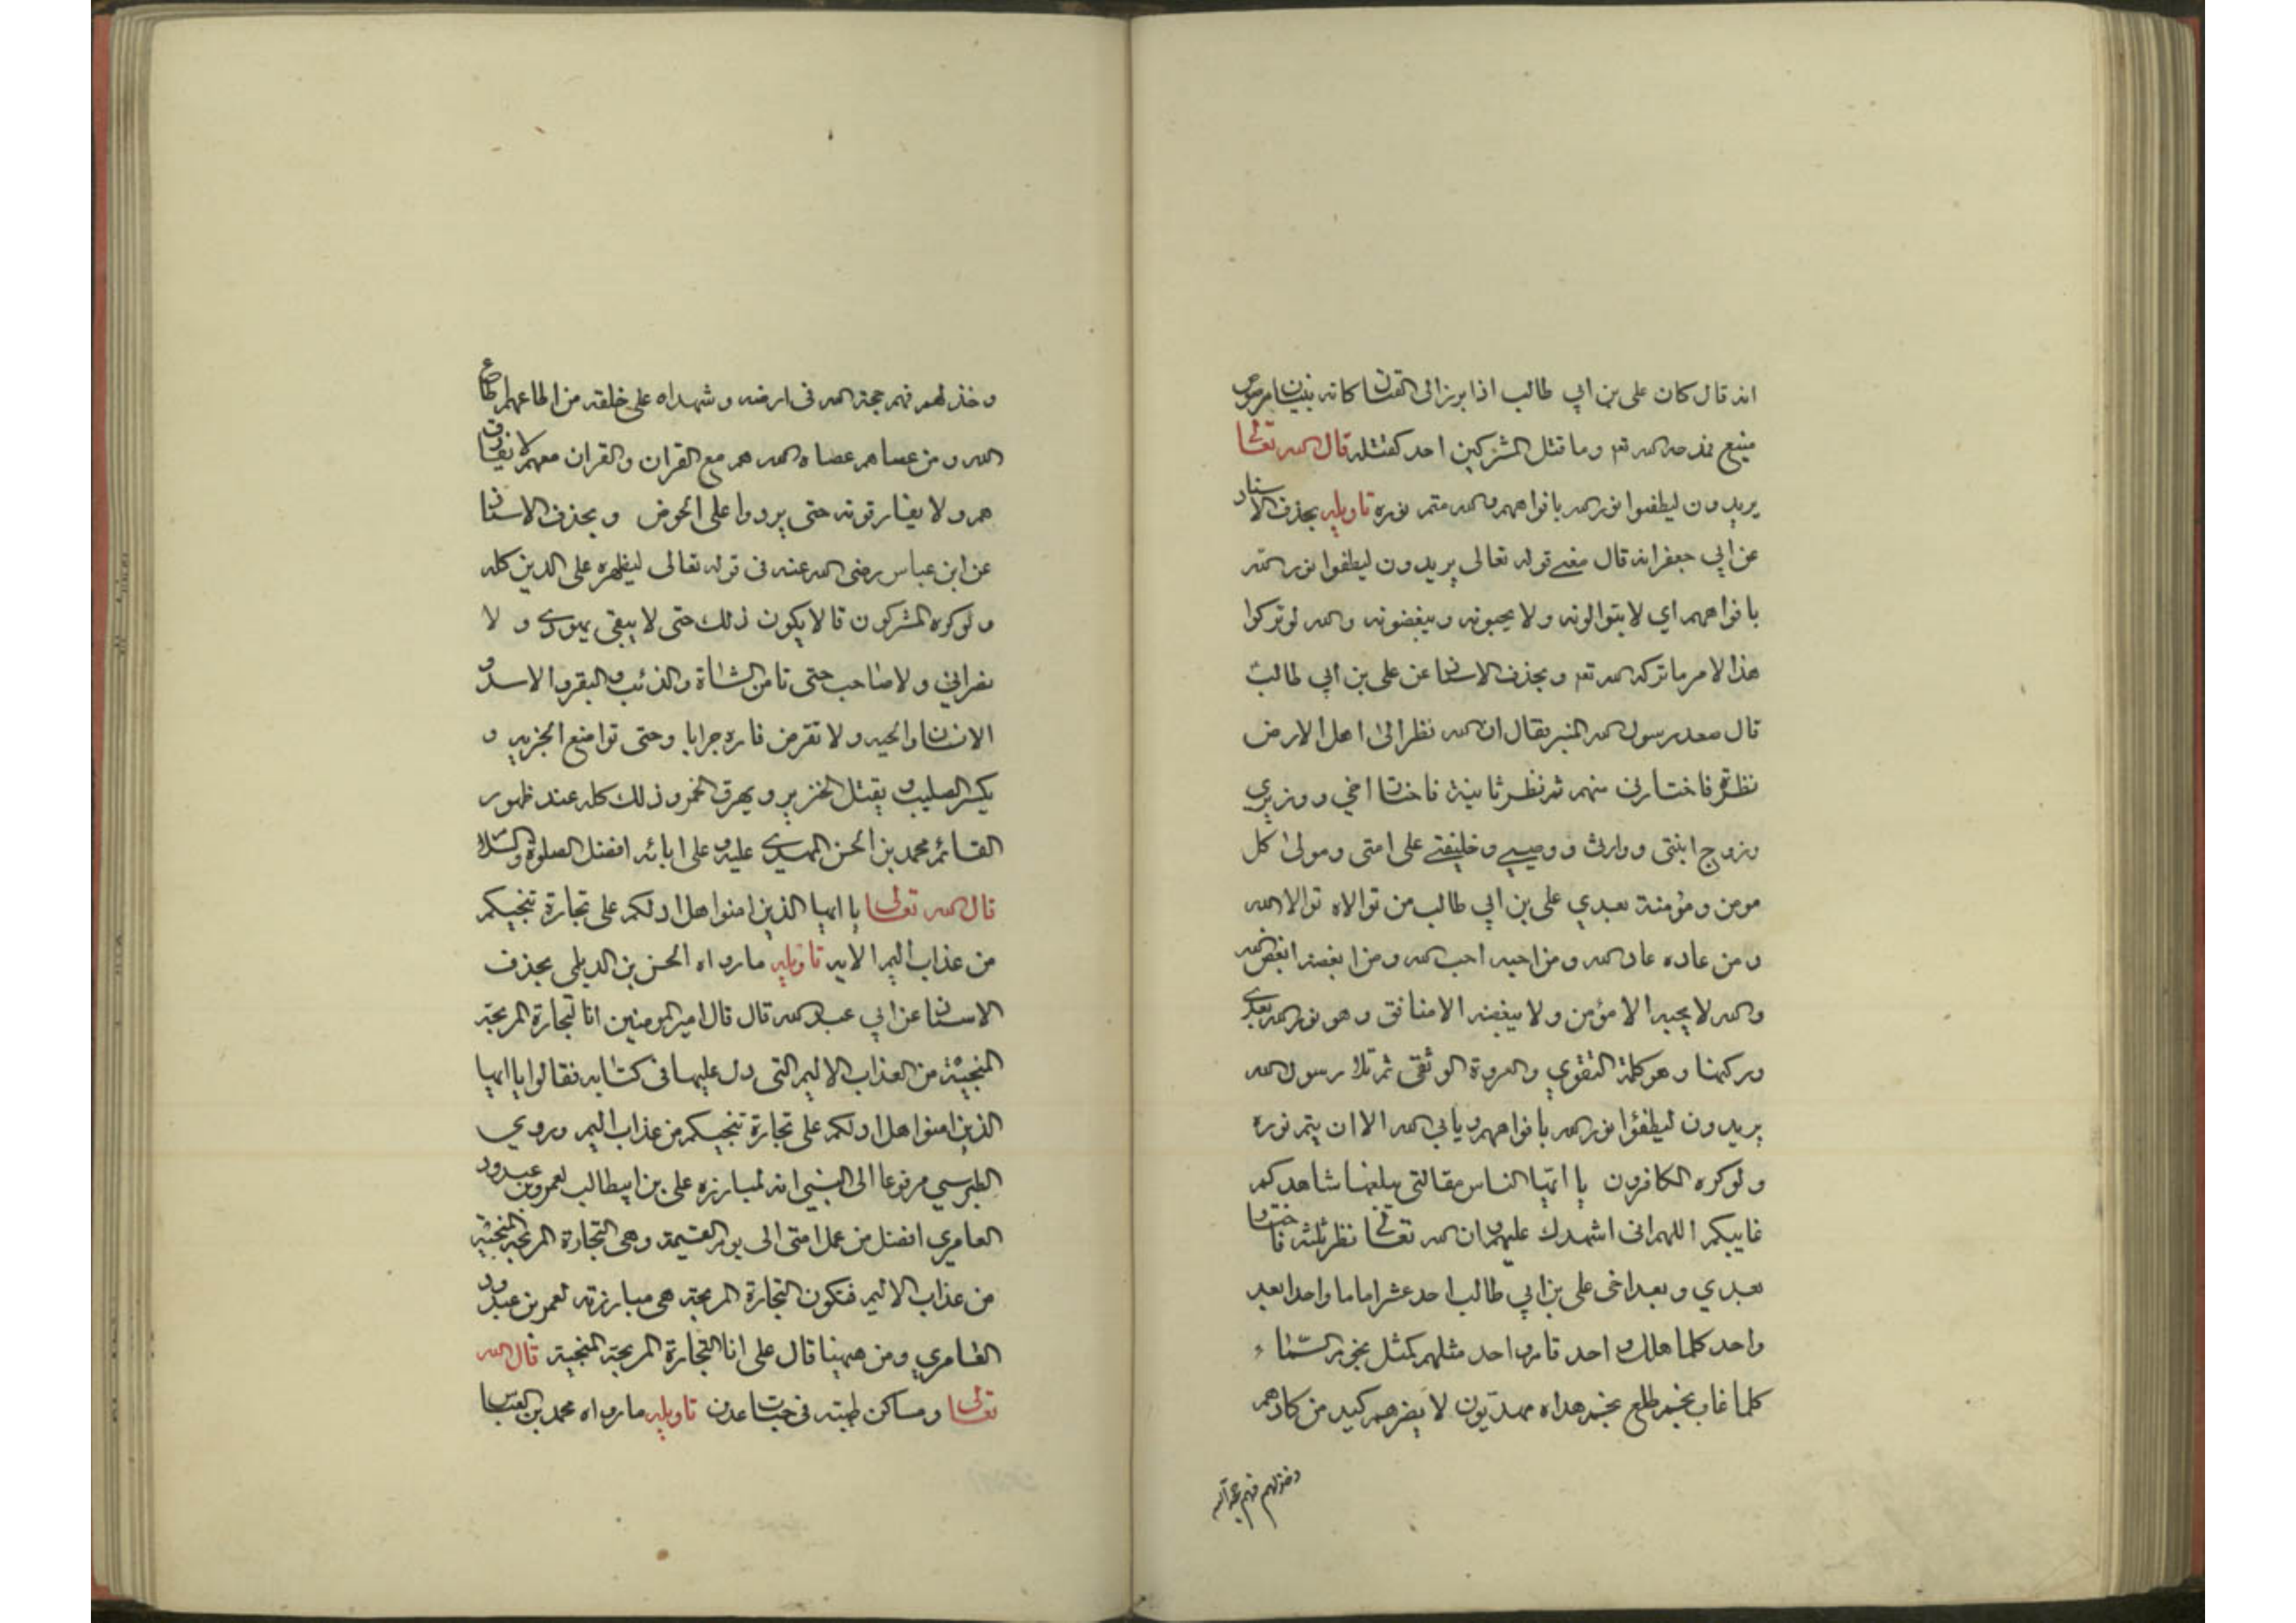 انه قال كان على بن ابي طالب اذا برز الى القتال كانه بنيان مرصوص
منيع فمدحه الله تع وما قتل المشركين احد كقتله قال الله تعالى
يريدون ليطفئوا نور الله بافواههم والله متم نوره تاويله بحذف الاسناد
عن ابي جعفر انه قال معنے قوله تعالى يريدون ليطفوا نور الله
بافواههم اي لا يتوالونه ولا يحبونه ويبغضونه والله لو تركوا
هذا الامر ما تركه الله تع وبحذف الاسناد عن على بن ابي طالب
قال صعد رسول الله المنبر فقال ان الله نظر الى اهل الارض
نظرة فاختارني منهم ثم نظر ثانية فاختار اخي ووزيري
وزوج ابنتى ووارث ووصيي وخليفتے على امتى ومولى كل
مومن ومؤمنة بعدي على بن ابي طالب من توالاه توالا الله
ومن عاده عاد الله ومن احبه احب الله ومن ابغضه ابغض الله
والله لا يحبه الا مؤمن ولا يبغضه الا منافق وهو نور الله بعدي
وركنها وهو كلمة التقوي والعروة الوثقى ثم تلا رسول الله
يريدون ليطفؤا نور الله بافواههم ويابي الله الا ان يتم نوره
ولو كره الكافرون يا ايها الناس مقالتى يبلغها شاهدكم
غايبكم اللهم انى اشهدك عليهم وان الله تعالى نظر ثلثة فاختار
بعدي وبعد اخى على بن ابي طالب احد عشر اماما واحدا بعد
واحد كلما هلك واحد قام واحد مثلهم كمثل نجوم السماء
كلما غاب نجم طلع نجم هداه مهديون لا يضرهم كيد من كادهم
وخذلهم فهم حجة الله
وخذلهم فهم حجة الله فى ارضه وشهداه على خلقه من اطاعهم اطاع
الله ومن عساهم عصاه الله هم مع القران والقران معهم لا يفارق
هم ولا يفارقونه حتى يردوا على الحوض وبحذف الاسناد
عن ابن عباس رضى الله عنه فى قوله تعالى ليظهره على الدين كله
ولو كره المشركون قال لا يكون ذلك حتى لا يبقى يهودي ولا
نصراني ولا صاحب حتى تامن الشاة والذئب والبقر والاسد و
الانسان والحيه ولا تقرض فاره جرابا وحتى تواضع الجزيه و
يكسر الصليب ويقتل الخنزير ويهرق الخمر وذلك كله عند ظهور
القائم محمد بن الحسن المهدي عليه وعلى ابائه افضل الصلوة والسلام
قال الله تعالى يا ايها الذين امنوا هل ادلكم على تجارة تنجيكم
من عذاب اليم الايه تاويله ما رواه الحسن بن الديلمى بحذف
الاسناد عن ابي عبد الله قال قال امير المومنين انا التجارة المربحة
المنجية من العذاب الاليم التى دل عليها فى كتابه فقالوا يا ايها
الذين امنوا هل ادلكم على تجارة تنجيكم من عذاب اليم وروي
الطبرسي مرفوعا الى النبي انه لمبارزه على بن ابيطالب لعمرو بن عبدود
العامري افضل من عمل امتى الى يوم القيمة وهى التجارة المربحة المنجية
من عذاب الاليم فتكون التجارة المربحة هى مبارزته لعمر بن عبدود
العامري ومن ههنا قال على انا التجارة المربحة المنجية قال الله
تعالى ومساكن طيبته فى جنات عدن تاويله ما رواه محمد بن العباس